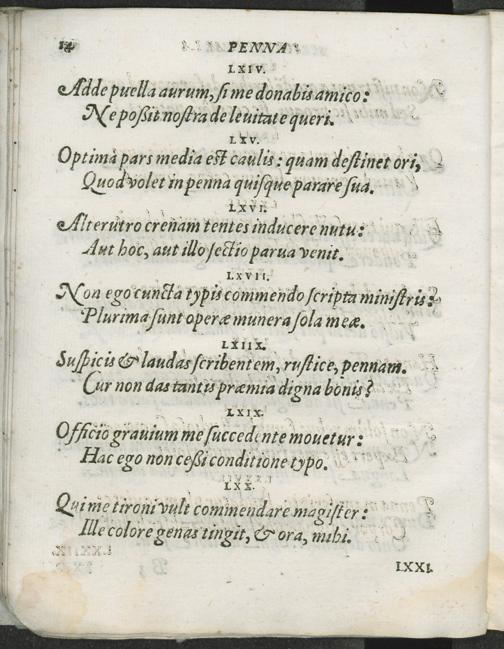 14 PENNA
LXIV.
Adde puella aurum, si me donabis amico:
Ne poßit nostra de leuitate queri.
LXV.
Optima pars media est caulis: quam destinet ori,
Quod volet in penna quisque parare sua.
LXVI.
Alterutro crenam tentes inducere nutu:
Aut hoc, aut illo sectio parua venit.
LXVII.
Non ego cuncta typis commendo scripta ministris:
Plurima sunt operæ munera sola meæ.
LXIIX.
Suspicis & laudas scribentem, rustice, pennam.
Cur non das tantis præmia digna bonis?
LXIX.
Officio grauium me succedente mouetur:
Hac ego non ceßi conditione typo.
LXX.
Qui me tironi vult commendare magister:
Ille colore genas tingit, & ora, mihi.
LXXI.